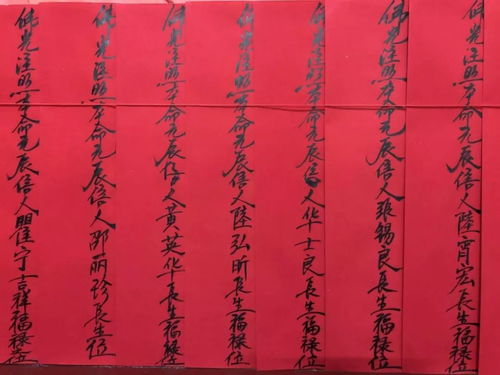 佛光注照本命元辰信人陸霄宏長生福祿位
佛光注照本命元辰信人張錫良長生福祿位
佛光注照本命元辰信人华士良長生福祿位
佛光注照本命元辰信人陸弘昕長生福祿位
佛光注照本命元辰信人黃英华長生福祿位
佛光注照本命元辰信人邵丽珍長生位
佛光注照本命元辰信人瞿宁吉祥福祿位